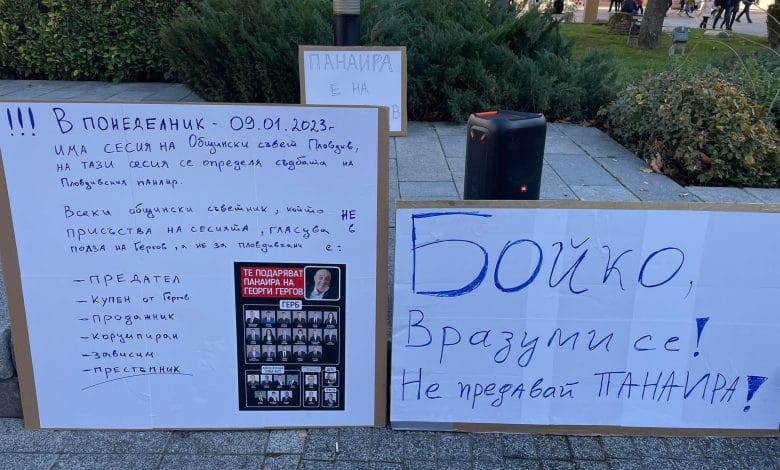 ПАНАИРА
Е НА
В
!!! В ПОНЕДЕЛНИК - 09.01.2023г
ИМА СЕСИЯ НА Общински съвет Пловдив,
НА ТАЗИ СЕСИЯ СЕ ОПРЕДЕЛЯ СЪДБАТА НА
Пловдивския панаир.
Всеки общински съветник, който НЕ
ПРИСЪСТВА НА СЕСИЯТА, ГЛАСУВА В
ПОЛЗА НА Гергов, а не за пловдивчани е:
- ПРЕДАТЕЛ
- КУПЕН от Гергов
- ПРОДАЖНИК
- Корумпиран
- Зависим
- ПРЕСТЪПНИК
ТЕ ПОДАРЯВАТ
ПАНАИРА НА
ГЕОРГИ ГЕРГОВ
ГЕРБ
JBL
БОЙКО,
Вразуми се!
Не предавай ПАНАИРА!